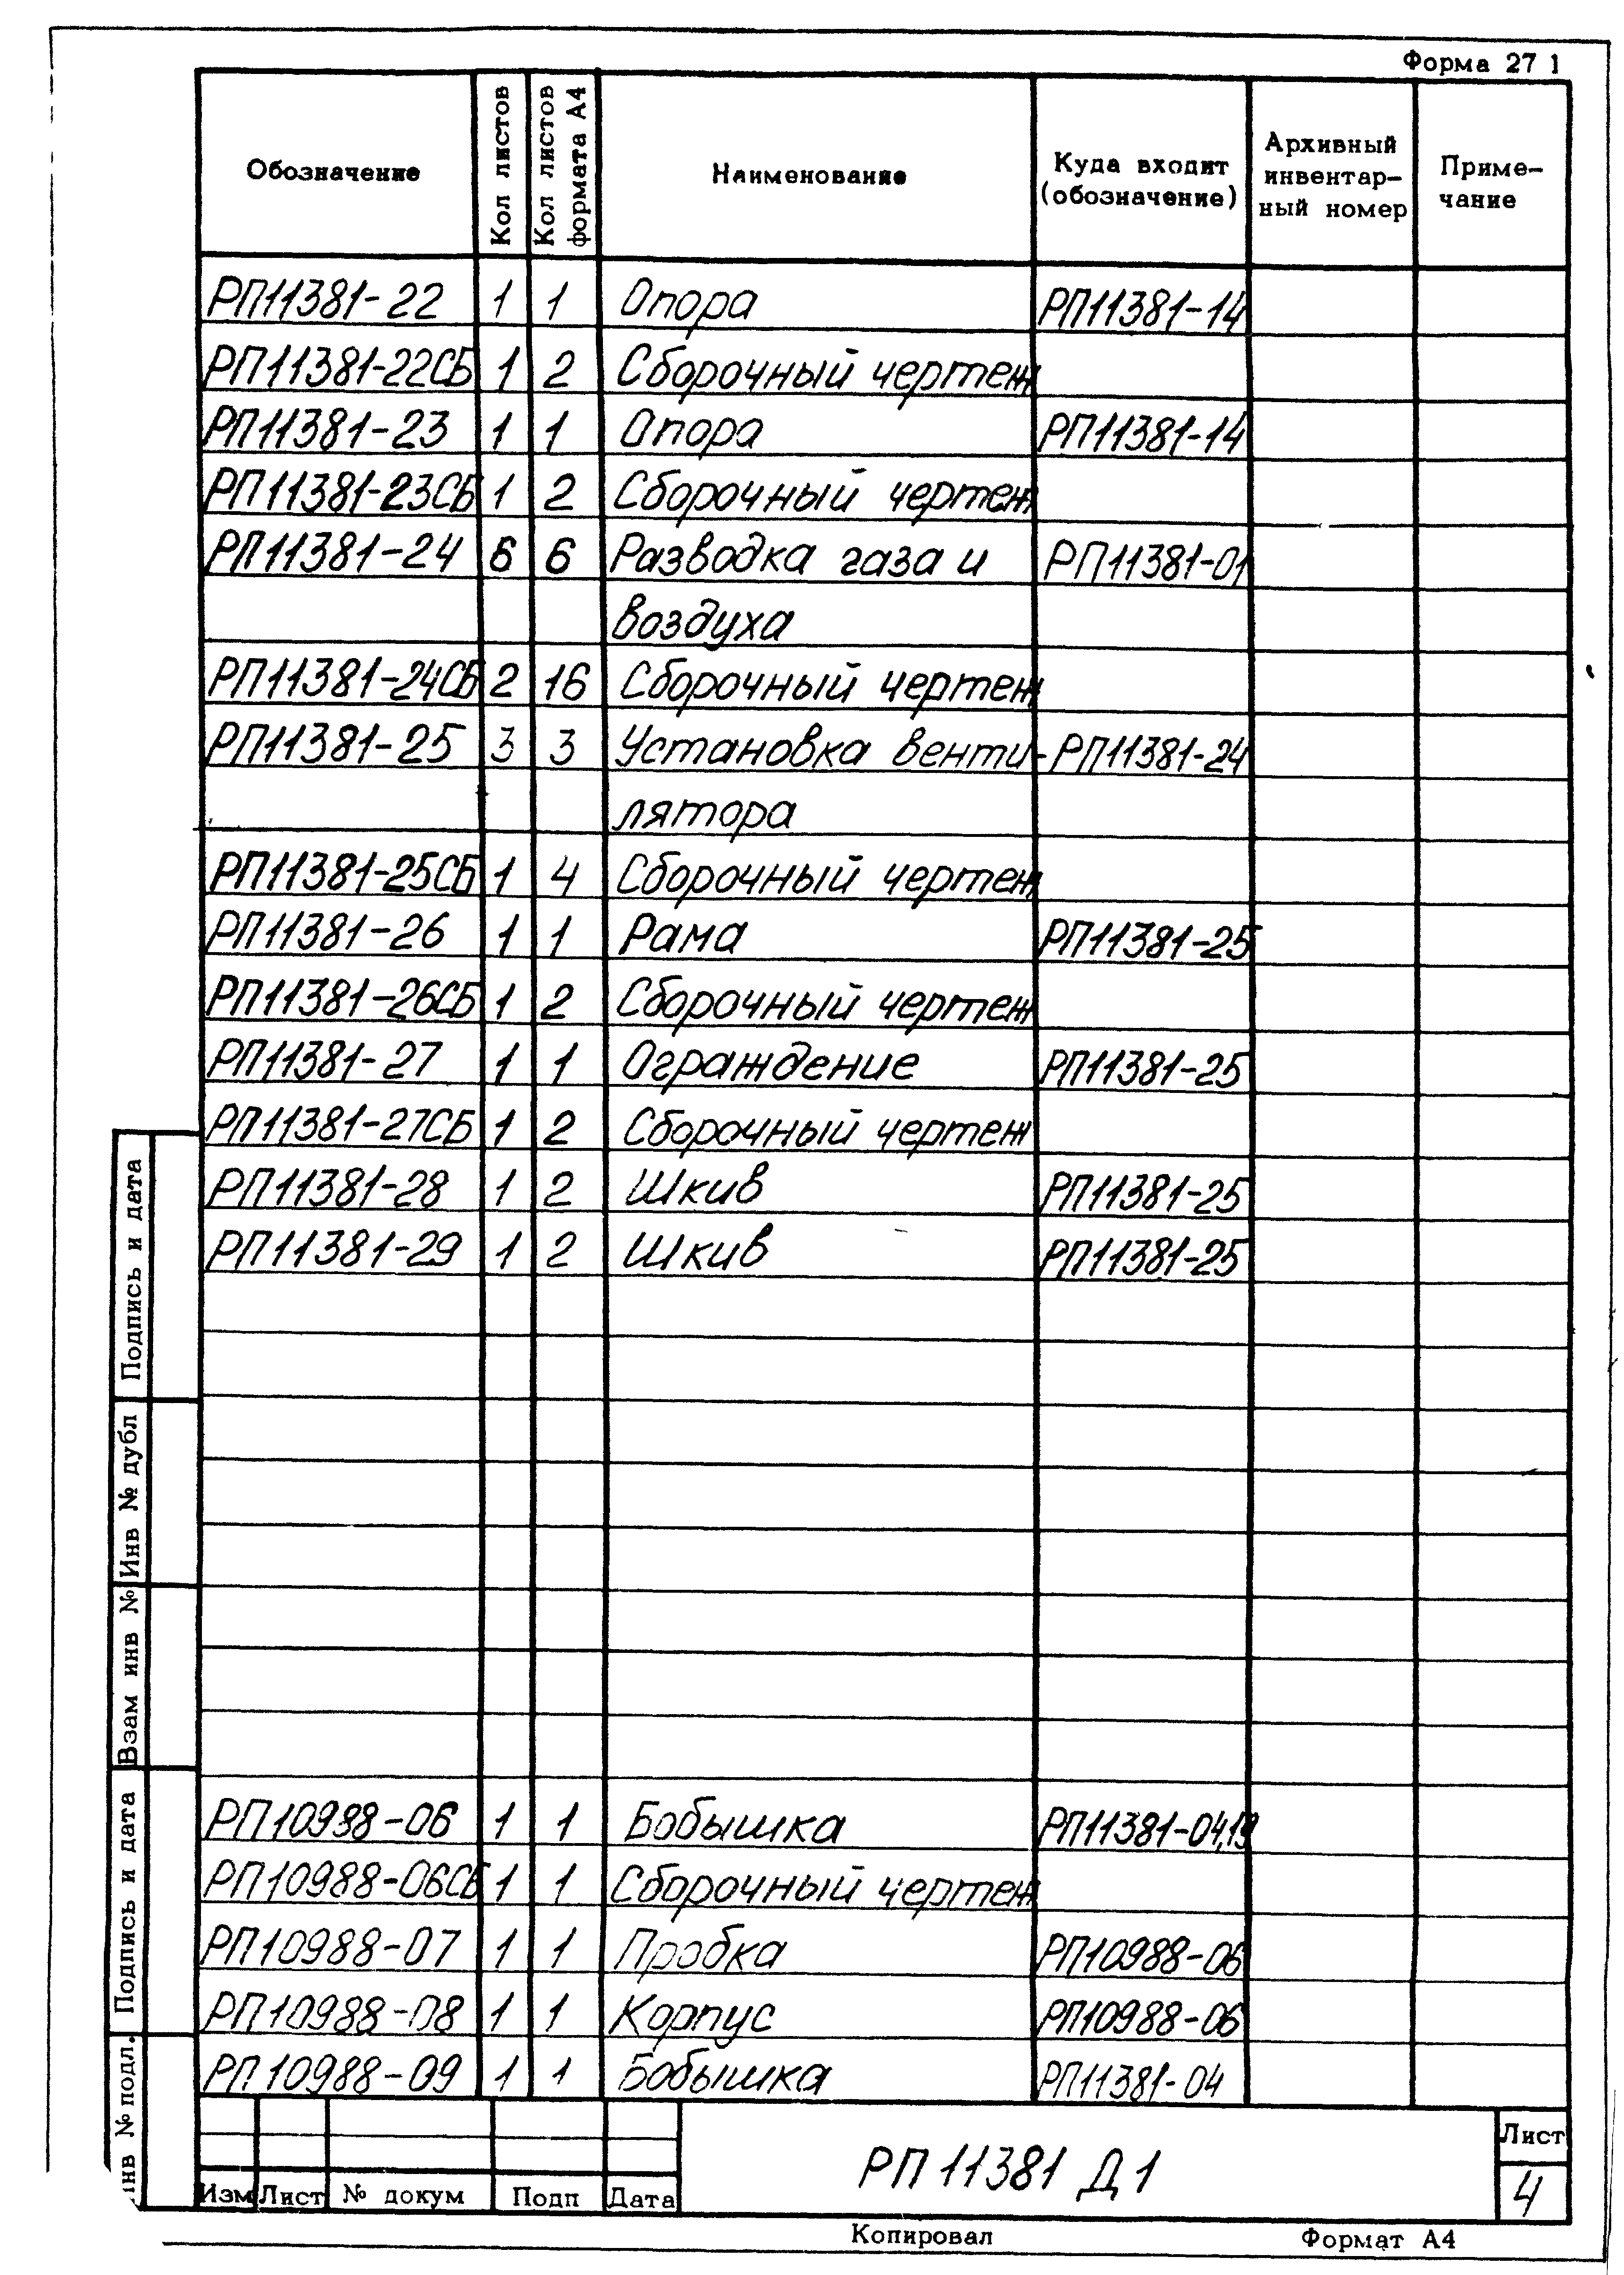 Форма 27 1
Обозначение
Кол листов
Кол листов формата А4
Наименование
Куда входит
(обозначение)
Архивный
инвентар-
ный номер
Приме-
чание
РП11381-22 1 1 Опора РП11381-14
РП11381-22СБ 1 2 Сборочный чертеж
РП11381-23 1 1 Опора РП11381-14
РП11381-23СБ 1 2 Сборочный чертеж
РП11381-24 6 6 Разводка газа и РП11381-01
воздуха
РП11381-24СБ 2 16 Сборочный чертеж
РП11381-25 3 3 Установка венти- РП11381-24
лятора
РП11381-25СБ 1 4 Сборочный чертеж
РП11381-26 1 1 Рама РП11381-25
РП11381-26СБ 1 2 Сборочный чертеж
РП11381-27 1 1 Ограждение РП11381-25
РП11381-27СБ 1 2 Сборочный чертеж
РП11381-28 1 2 Шкив РП11381-25
РП11381-29 1 2 Шкив РП11381-25
РП10988-06 1 1 Бобышка РП11381-04,19
РП10988-06СБ 1 1 Сборочный чертеж
РП10988-07 1 1 Пробка РП10988-06
РП10988-08 1 1 Корпус РП10988-06
РП10988-09 1 1 Бобышка РП11381-04
Подпись и дата
Инв № дубл
Взам инв №
Подпись и дата
Инв № подл.
Изм Лист № докум Подп Дата
РП 11381 Д1
Лист
4
Копировал
Формат А4